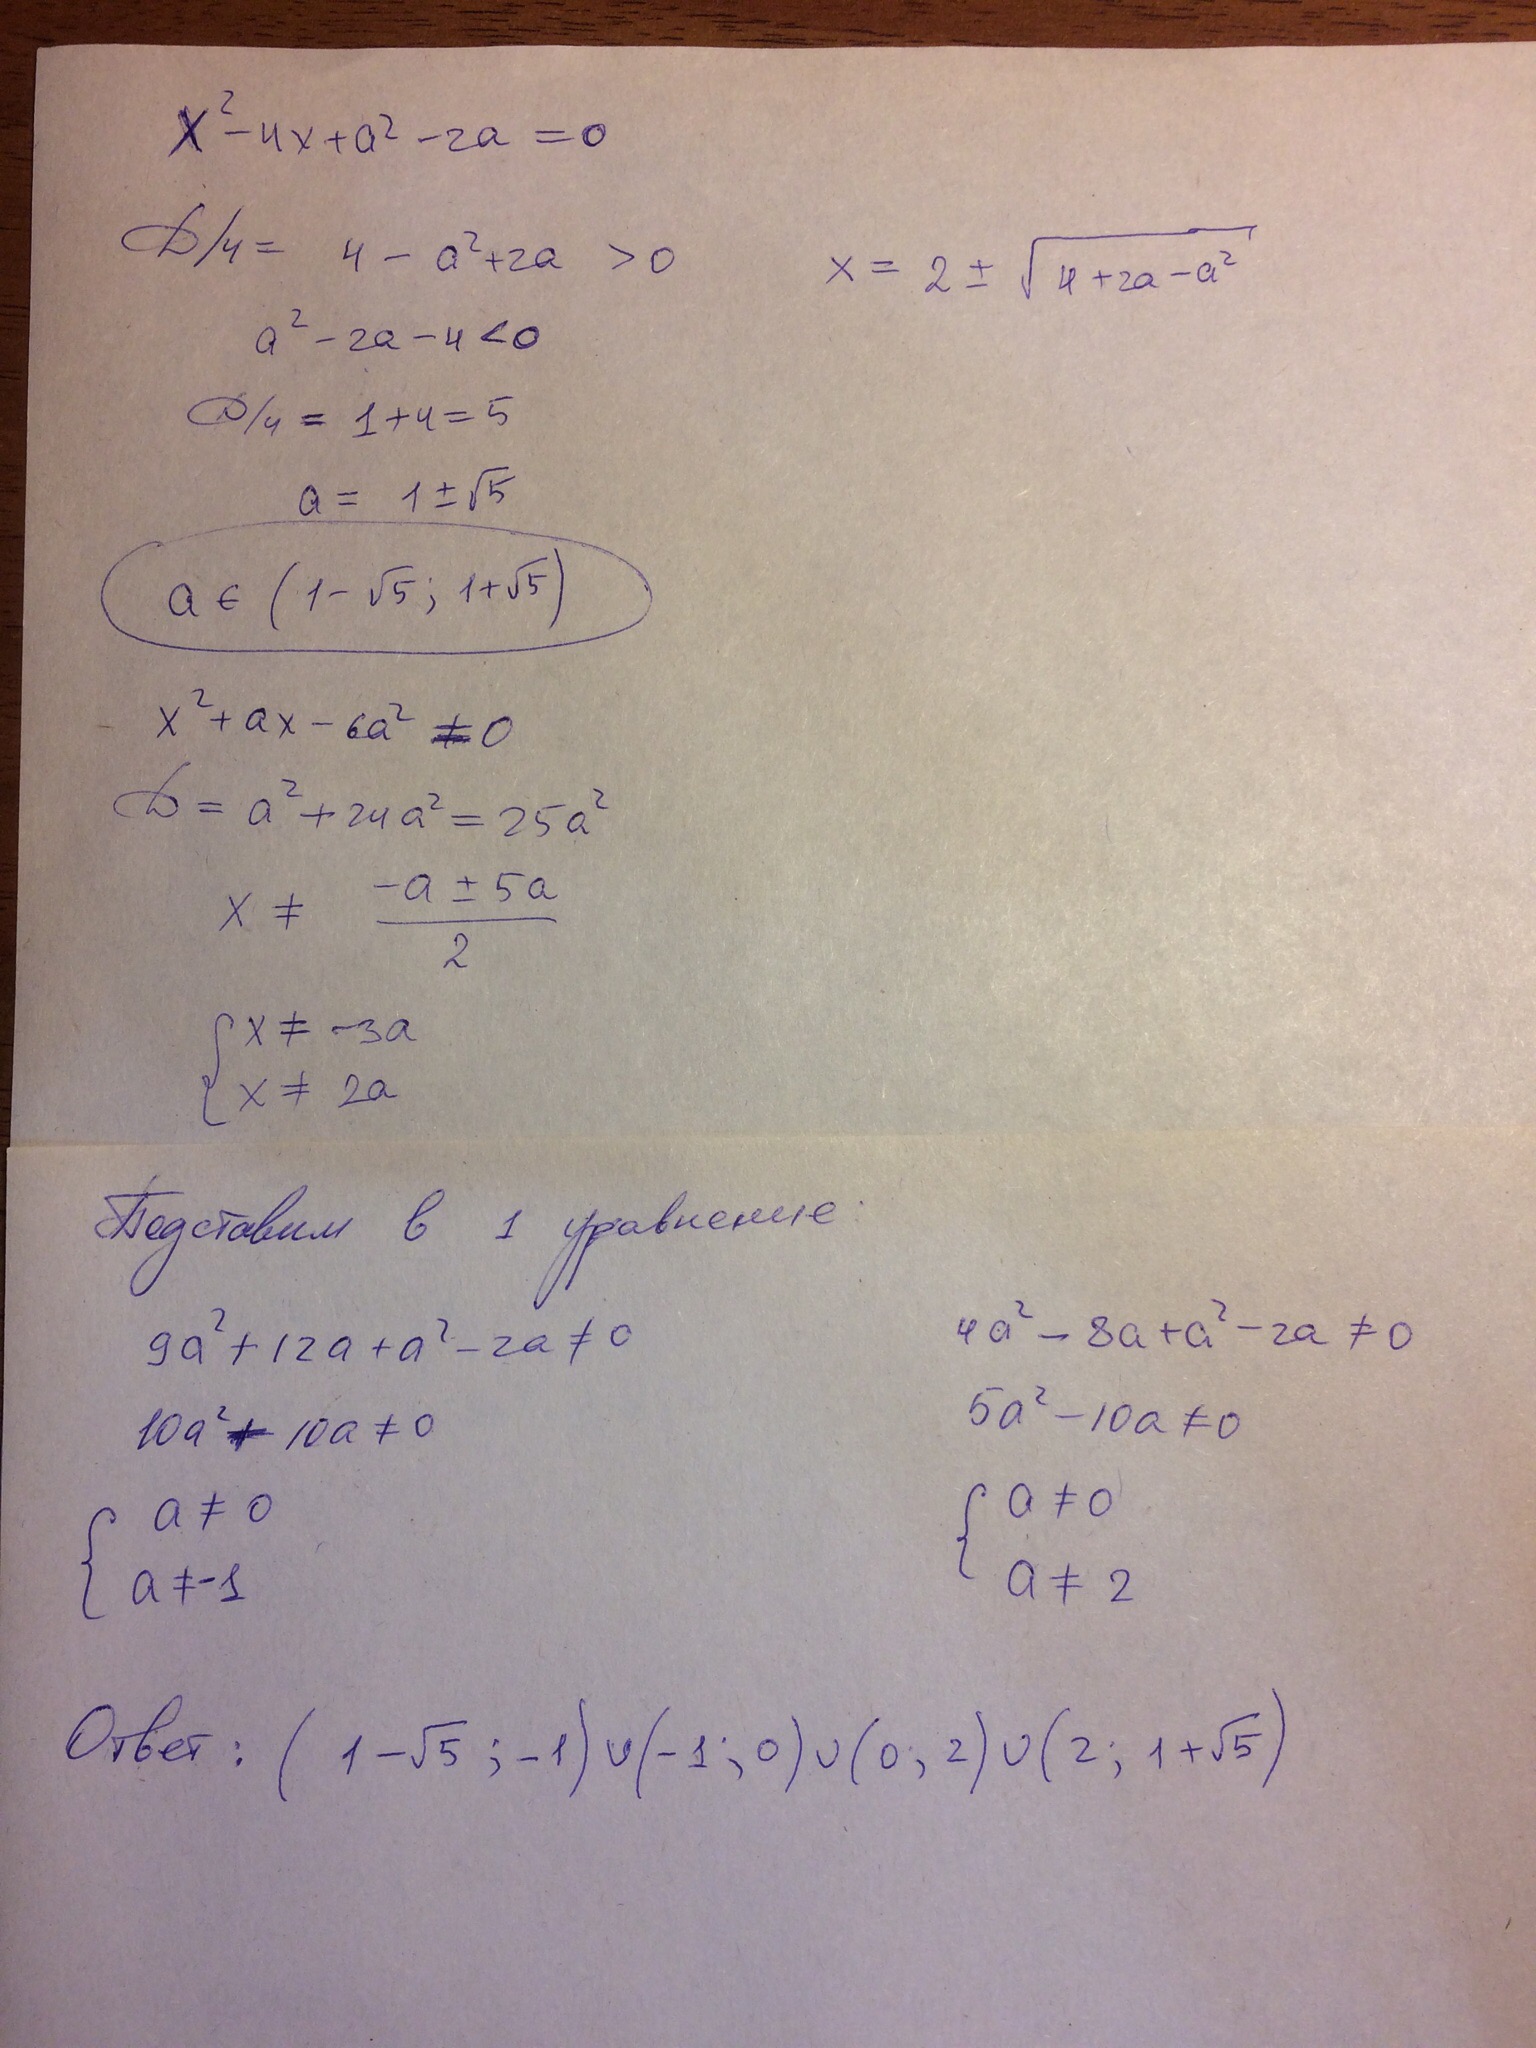 x² - 4x + a² - 2a = 0
D/4 = 4 - a² + 2a > 0
x = 2 ± √(4 + 2a - a²)
a² - 2a - 4 < 0
D/4 = 1 + 4 = 5
a = 1 ± √5
a ∈ (1 - √5; 1 + √5)
x² + ax - 6a² ≠ 0
D = a² + 24a² = 25a²
x ≠ (-a ± 5a)/2
{ x ≠ -3a
x ≠ 2a
Подставим в 1 уравнение:
9a² + 12a + a² - 2a ≠ 0
4a² - 8a + a² - 2a ≠ 0
10a² + 10a ≠ 0
5a² - 10a ≠ 0
{ a ≠ 0
a ≠ -1
{ a ≠ 0
a ≠ 2
Ответ: (1 - √5; -1) ∪ (-1; 0) ∪ (0; 2) ∪ (2; 1 + √5)